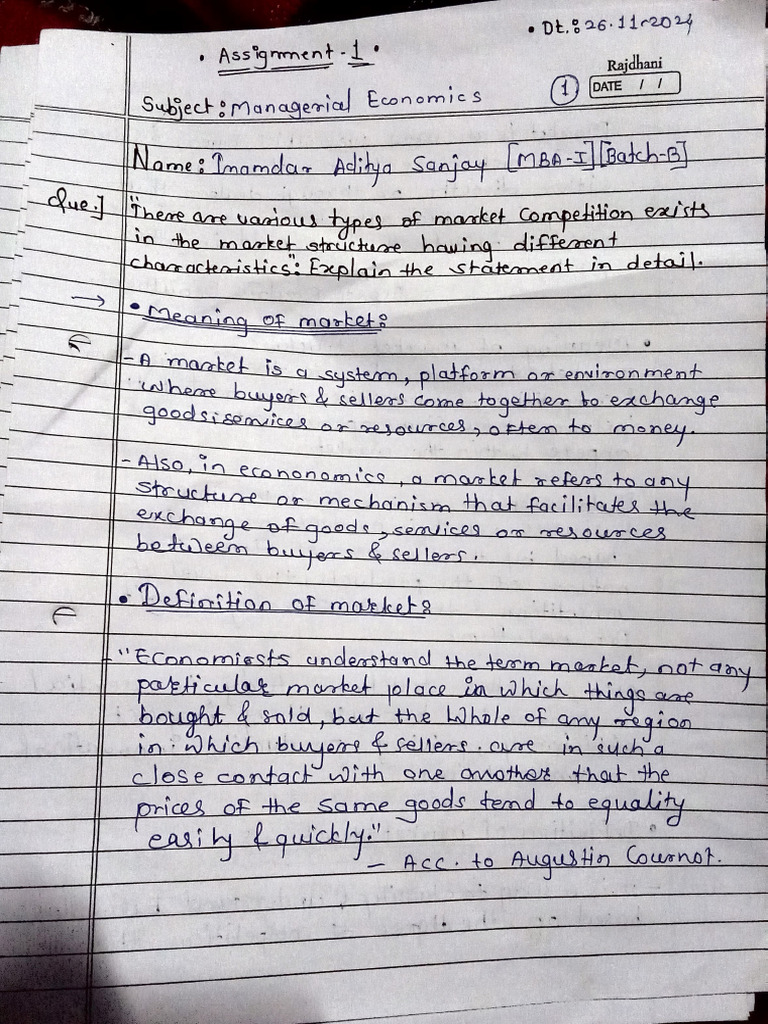 • Dt.: 26.11-2024
• Assignment - 1 •
Rajdhani
Subject: Managerial Economics
1
DATE / /
Name: Inamdar Aditya Sanjay [MBA-I] [Batch-B]
Que.] "There are various types of market competition exists
in the market structure having different
characteristics". Explain the statement in detail.
→ • Meaning of market:
- A market is a system, platform or environment
where buyers & sellers come together to exchange
goods, services or resources, often to money.
- Also, in econonomics, a market refers to any
structure or mechanism that facilitates the
exchange of goods, services or resources
between buyers & sellers.
• Definition of market:
- "Economiests understand the term market, not any
particular market place in which things are
bought & sold, but the whole of any region
in which buyers & sellers are in such a
close contact with one another that the
prices of the same goods tend to equality
easily & quickly."
- Acc. to Augustin Cournot.